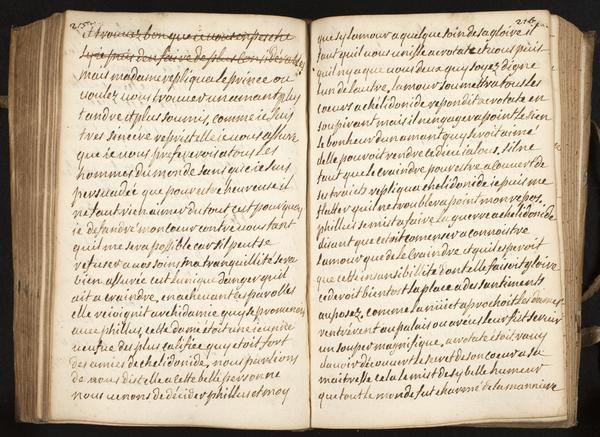 215
mais madame repliqua le prince ou
voulez uous trouuer un amant plus
tandre et plus soumis, comme ie suis
tres sincere reprist elle ie uous assure
que ie uous prefererois a tous les
hommes du monde sans que ie suis
persuadée que pour estre heureuse il
ne faut rien aimer du tout cest pourquoy
ie defandré mon cœur contre uous tant
quil me sera possible car sil peut se
refuser a uos soins ma tranquillité sera
bien assurée cest lunique danger quil
ait a craindre, en acheuant ses parolles
elle reioignit archidamie qui se promenoit
auec phillis, cette dame etoit une ieune
ueufue des plus califiée qui etoit fort
des amies de chelidonide, nous parlions
de uous dist elle a cette belle personne
nous uenons de décider phillis et moy
216
que sy lamour a quelque soin de sa gloire il
faut quil uous unisse acrotate et uous puis
quil ny a que uous deux qui soyez digne
lun de lautre, lamour soumettra tous les
cœurs a chelidonide repondit acrotate en
soupirant mais il nengagera point le sien
le bonheur dun amant qui se uoit aimé
delle pouroit rendre le dieu ialous, sil ne
faut que le craindre pour estre a couuert de
ses traicts repliqua chelidonide ie puis me
flatter quil ne troublera point mon repos.
phillis se mist a faire la guerre a chelidonide
disant que cetoit comenser a connoistre
lamour que de le craindre et quil esperoit
que cette insansibilité dont elle faisoit gloire
cederoit bientost la place a des santiments
oposez, comme la nuict aprochoit les dames
rentrerent au palais ou areus leur fist seruir
un souper magnifique, acrotate etoit rauy
dauoir découuert le secret de son cœur a sa
maitresse cela le mist de sy belle humeur
que tout le monde fut charmé de la manniere